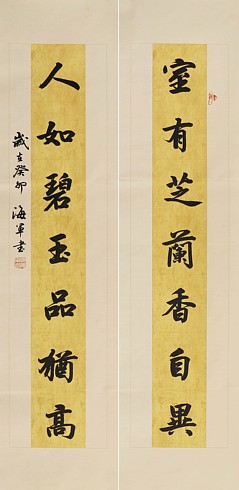 室有芝蘭香自異
人如碧玉品猶高
歲在癸卯
海軍書